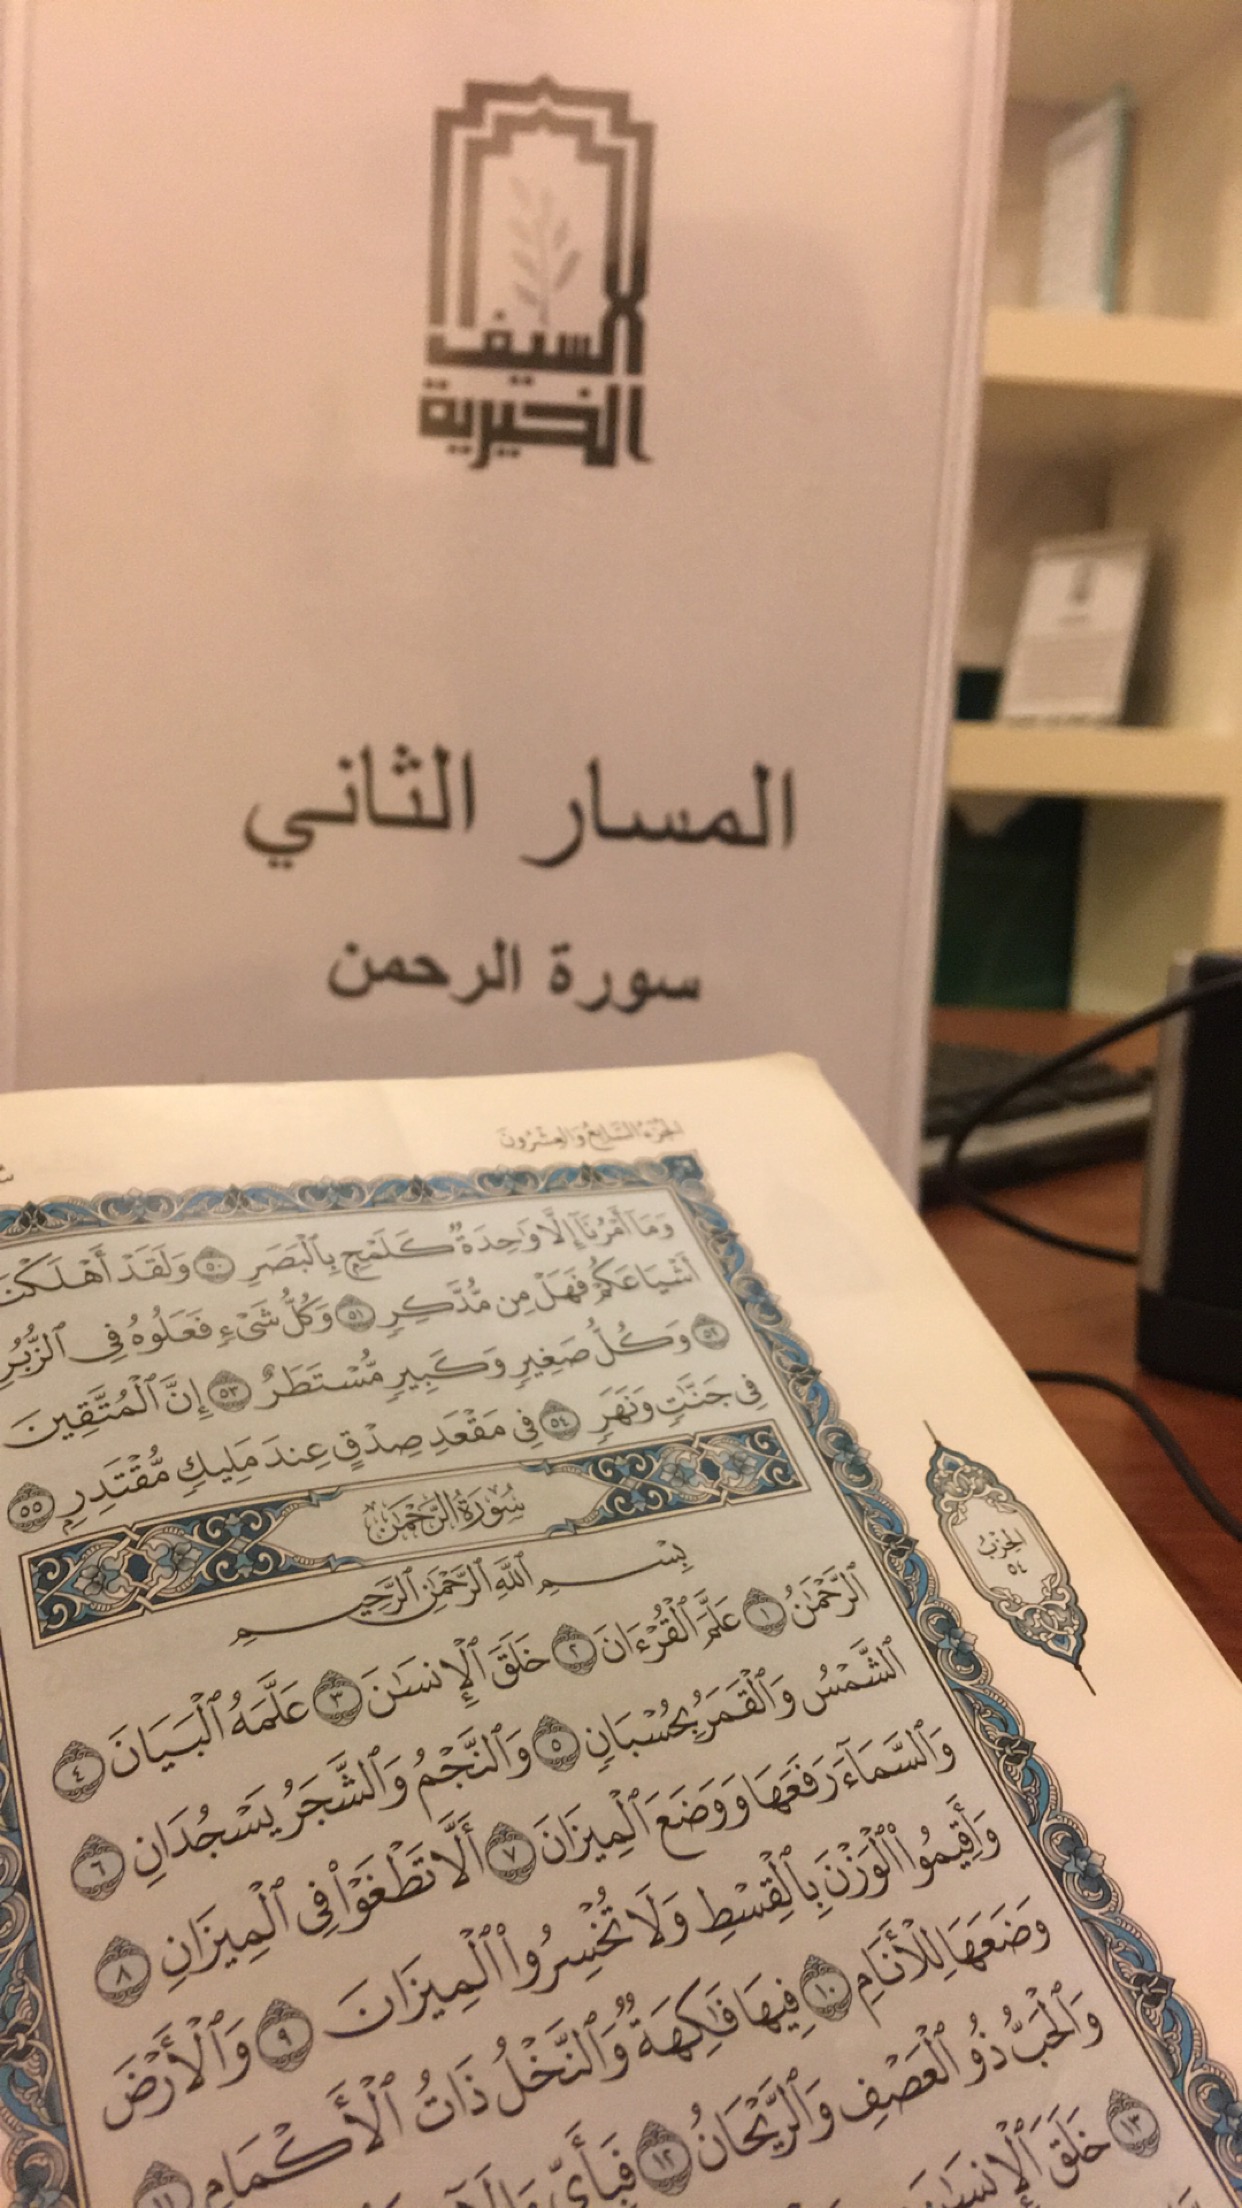 السيف
الخيرية
المسار الثاني
سورة الرحمن
الجزء السابع والعشرون
وَمَآ أَمْرُنَآ إِلَّا وَٰحِدَةٌ كَلَمْحٍۭ بِٱلْبَصَرِ ٥٠ وَلَقَدْ أَهْلَكْنَآ
أَشْيَاعَكُمْ فَهَلْ مِن مُّدَّكِرٍ ٥١ وَكُلُّ شَىْءٍ فَعَلُوهُ فِى ٱلزُّبُرِ
٥٢ وَكُلُّ صَغِيرٍ وَكَبِيرٍ مُّسْتَطَرٌ ٥٣ إِنَّ ٱلْمُتَّقِينَ
فِى جَنَّٰتٍ وَنَهَرٍ ٥٤ فِى مَقْعَدِ صِدْقٍ عِندَ مَلِيكٍ مُّقْتَدِرٍۭ ٥٥
سُورَةُ الرَّحْمَٰن
بِسْمِ ٱللَّهِ ٱلرَّحْمَٰنِ ٱلرَّحِيمِ
ٱلرَّحْمَٰنُ ١ عَلَّمَ ٱلْقُرْءَانَ ٢ خَلَقَ ٱلْإِنسَٰنَ ٣ عَلَّمَهُ ٱلْبَيَانَ ٤
ٱلشَّمْسُ وَٱلْقَمَرُ بِحُسْبَانٍ ٥ وَٱلنَّجْمُ وَٱلشَّجَرُ يَسْجُدَانِ ٦
وَٱلسَّمَآءَ رَفَعَهَا وَوَضَعَ ٱلْمِيزَانَ ٧ أَلَّا تَطْغَوْا۟ فِى ٱلْمِيزَانِ ٨
وَأَقِيمُوا۟ ٱلْوَزْنَ بِٱلْقِسْطِ وَلَا تُخْسِرُوا۟ ٱلْمِيزَانَ ٩ وَٱلْأَرْضَ
وَضَعَهَا لِلْأَنَامِ ١٠ فِيهَا فَٰكِهَةٌ وَٱلنَّخْلُ ذَاتُ ٱلْأَكْمَامِ ١١
وَٱلْحَبُّ ذُو ٱلْعَصْفِ وَٱلرَّيْحَانُ ١٢ فَبِأَىِّ
١٣ خَلَقَ ٱلْإِنسَٰنَ
الحزب
٥٤